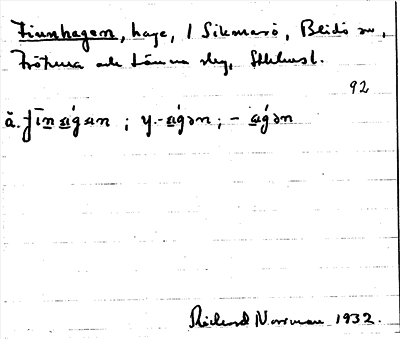 Finnhagen, hage, 1 Sikmarö, Blidö sn,
Frötuna och Länna slg, Sthlmsl.
92
ä. fīnagan ; y. -agən ; - agən
Rickard Norrman 1932.